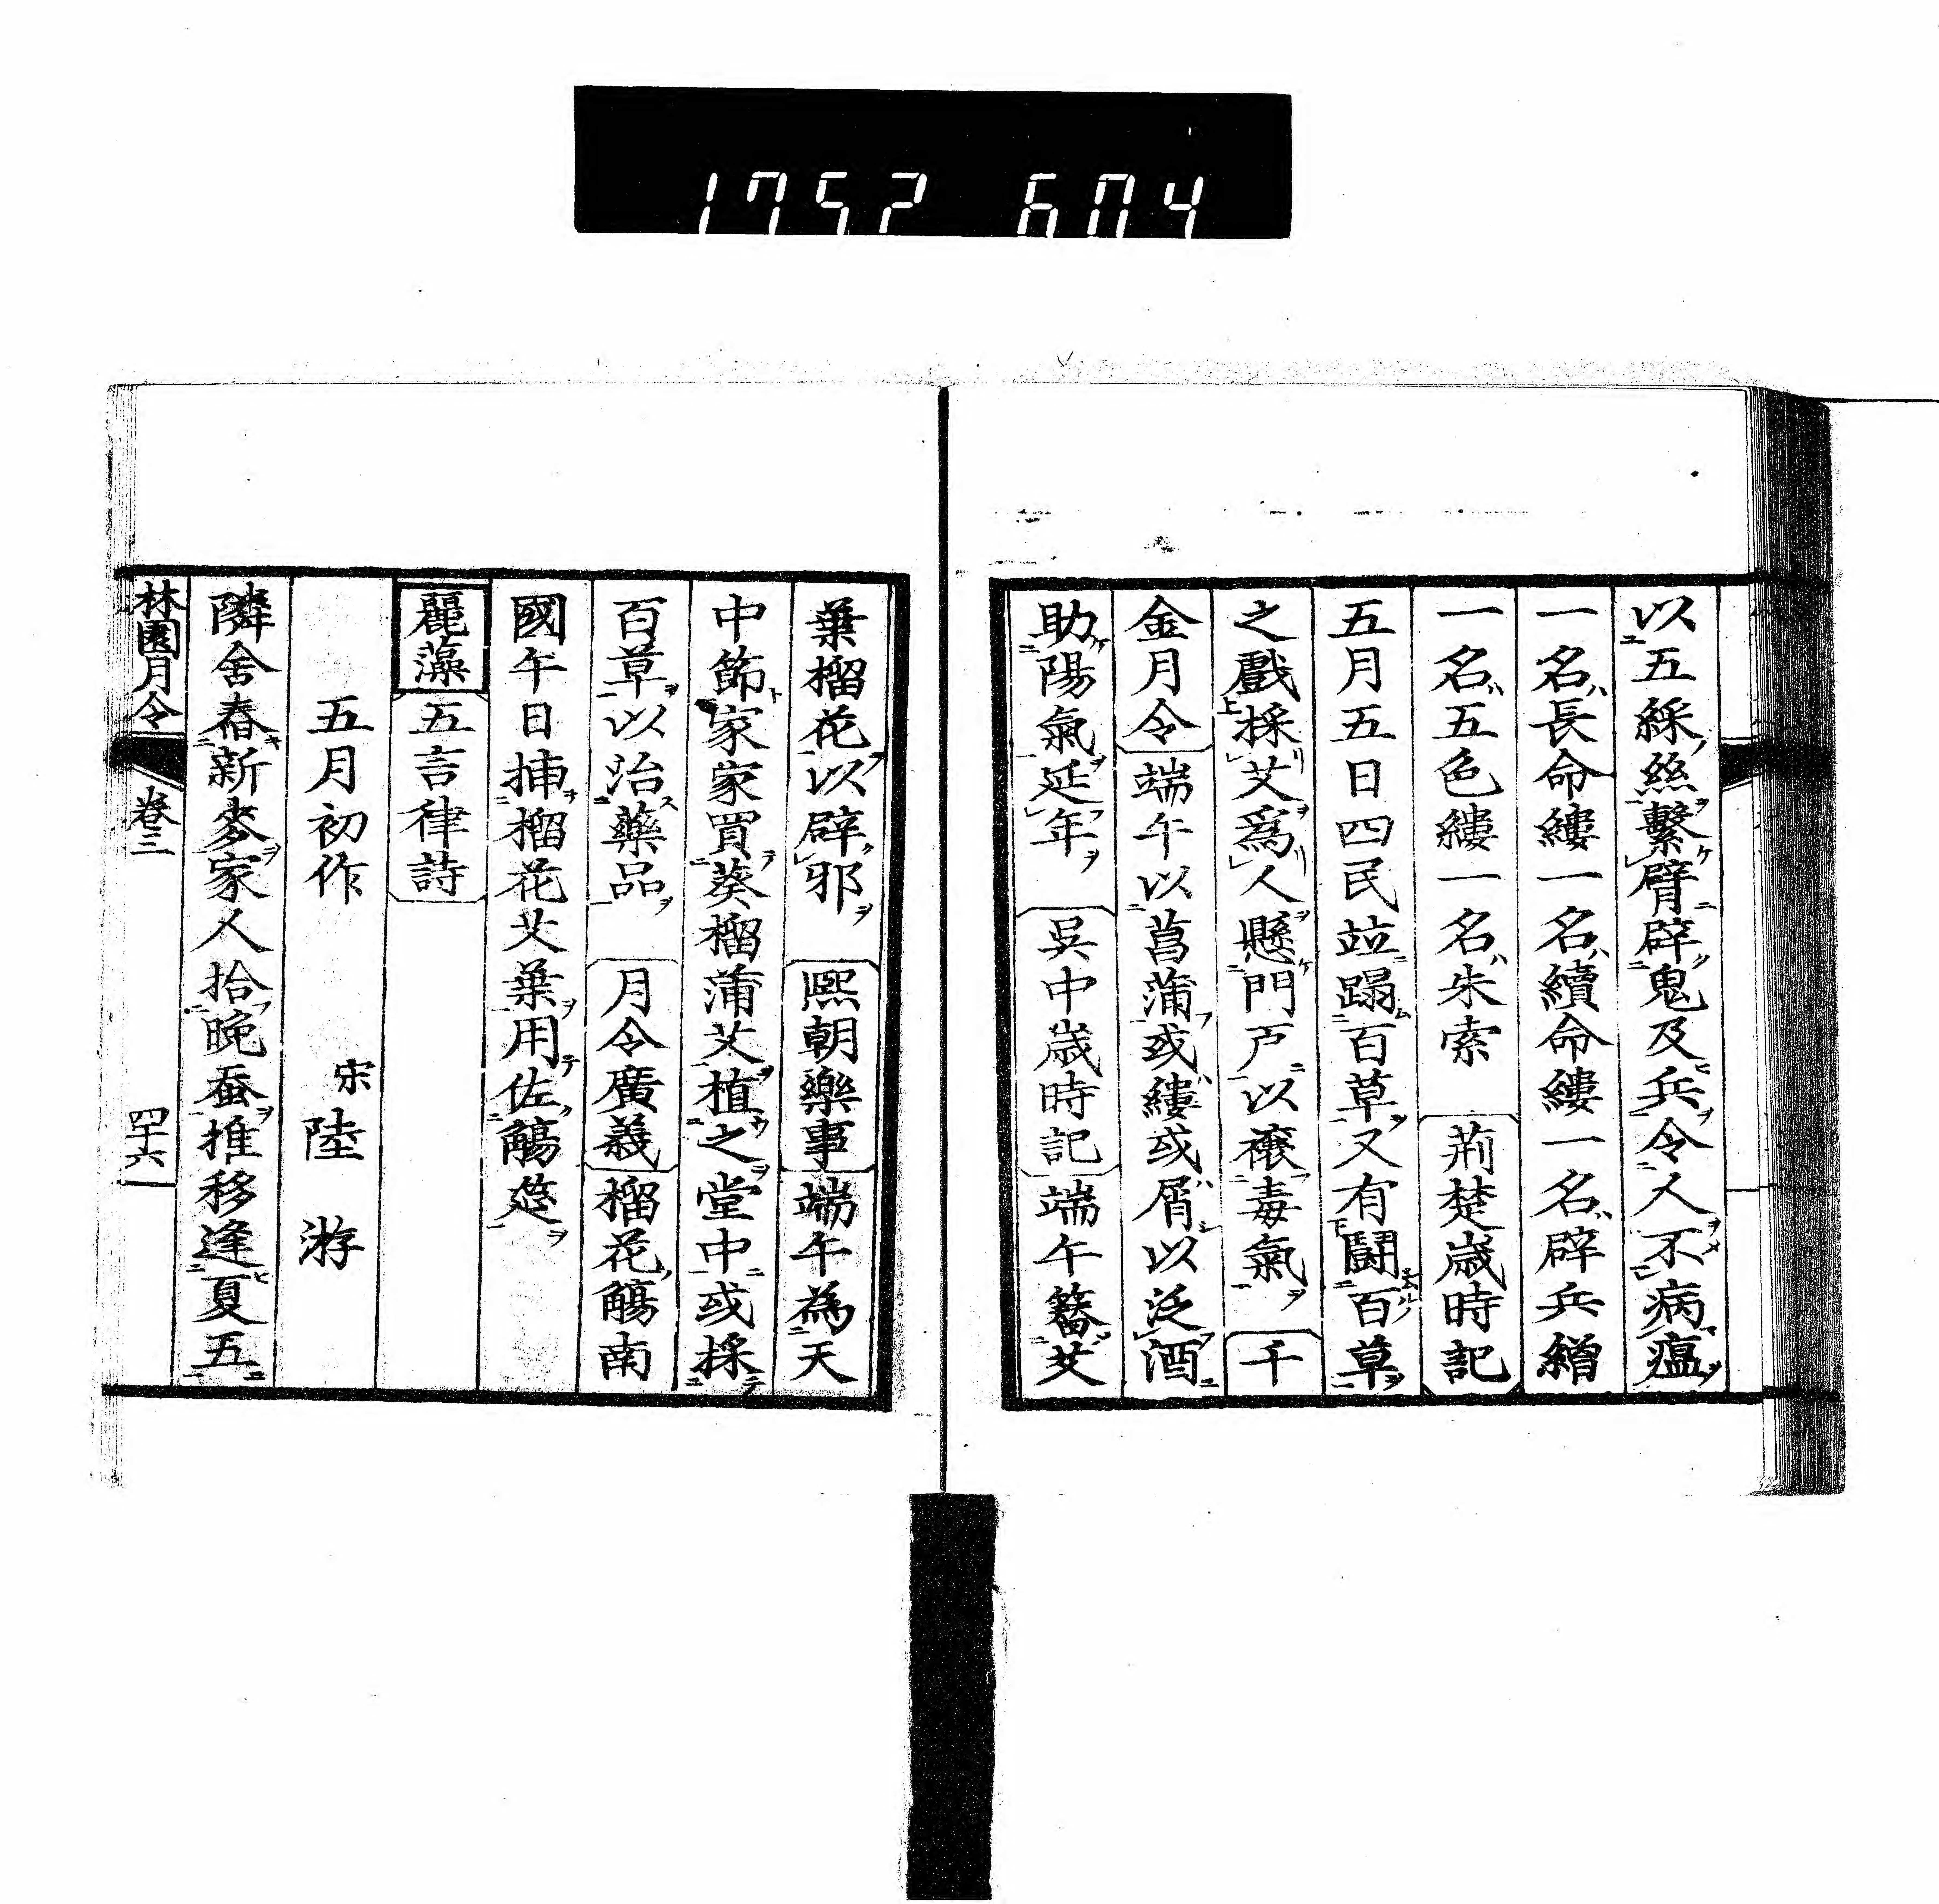 1752 604
以五綵絲繫臂辟鬼及兵令人不病瘟
一名長命縷一名續命縷一名辟兵繒
一名五色縷一名朱索 荊楚歲時記
五月五日四民竝蹋百草又有鬪百草
之戲採艾爲人懸門戸以禳毒氣 千
金月令 端午以菖蒲或縷或屑以泛酒
助陽氣延年 吳中歲時記 端午簪艾
葉榴花以辟邪 熙朝樂事 端午為天
中節家家買葵榴蒲艾植之堂中或採
百草以治藥品 月令廣義 榴花觴南
國午日挿榴花艾葉用佐觴筵
麗藻 五言律詩
五月初作 宋 陸游
隣舍舂新麥家人拾晚蚕推移逢夏五
林園月令 卷三 四十六